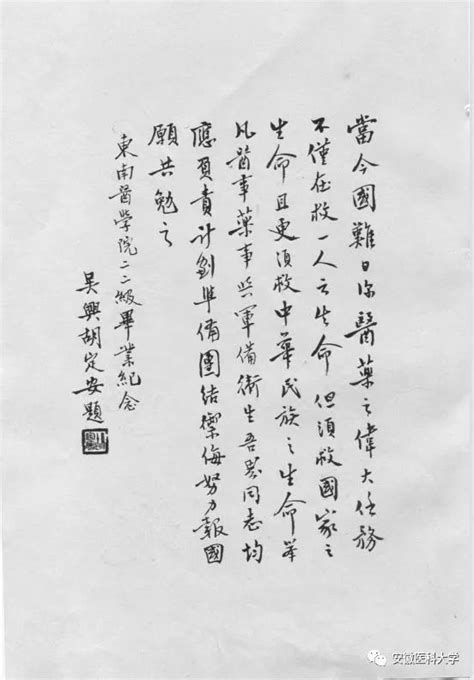 當今國難日深醫藥之偉大任務
不僅在救一人之生命但須救國家之
生命且更須救中華民族之生命舉
凡醫事藥事與軍備衛生吾同志均
應負責計劃準備團結禦侮努力報國
願共勉之
東南醫學院二二級畢業紀念
吳興胡定安題
安徽医科大学